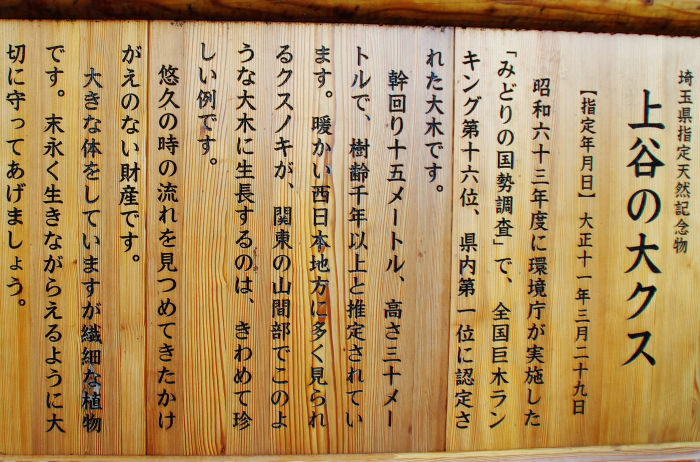 埼玉県指定天然記念物
上谷の大クス
【指定年月日】大正十一年三月二十九日
昭和六十三年度に環境庁が実施した
「みどりの国勢調査」で、全国巨木ラン
キング第十六位、県内第一位に認定さ
れた大木です。
幹回り十五メートル、高さ三十メー
トルで、樹齢千年以上と推定されてい
ます。暖かい西日本地方に多く見られ
るクスノキが、関東の山間部でこのよ
うな大木に生長するのは、きわめて珍
しい例です。
悠久の時の流れを見つめてきたかけ
がえのない財産です。
大きな体をしていますが繊細な植物
です。末永く生きながらえるように大
切に守ってあげましょう。